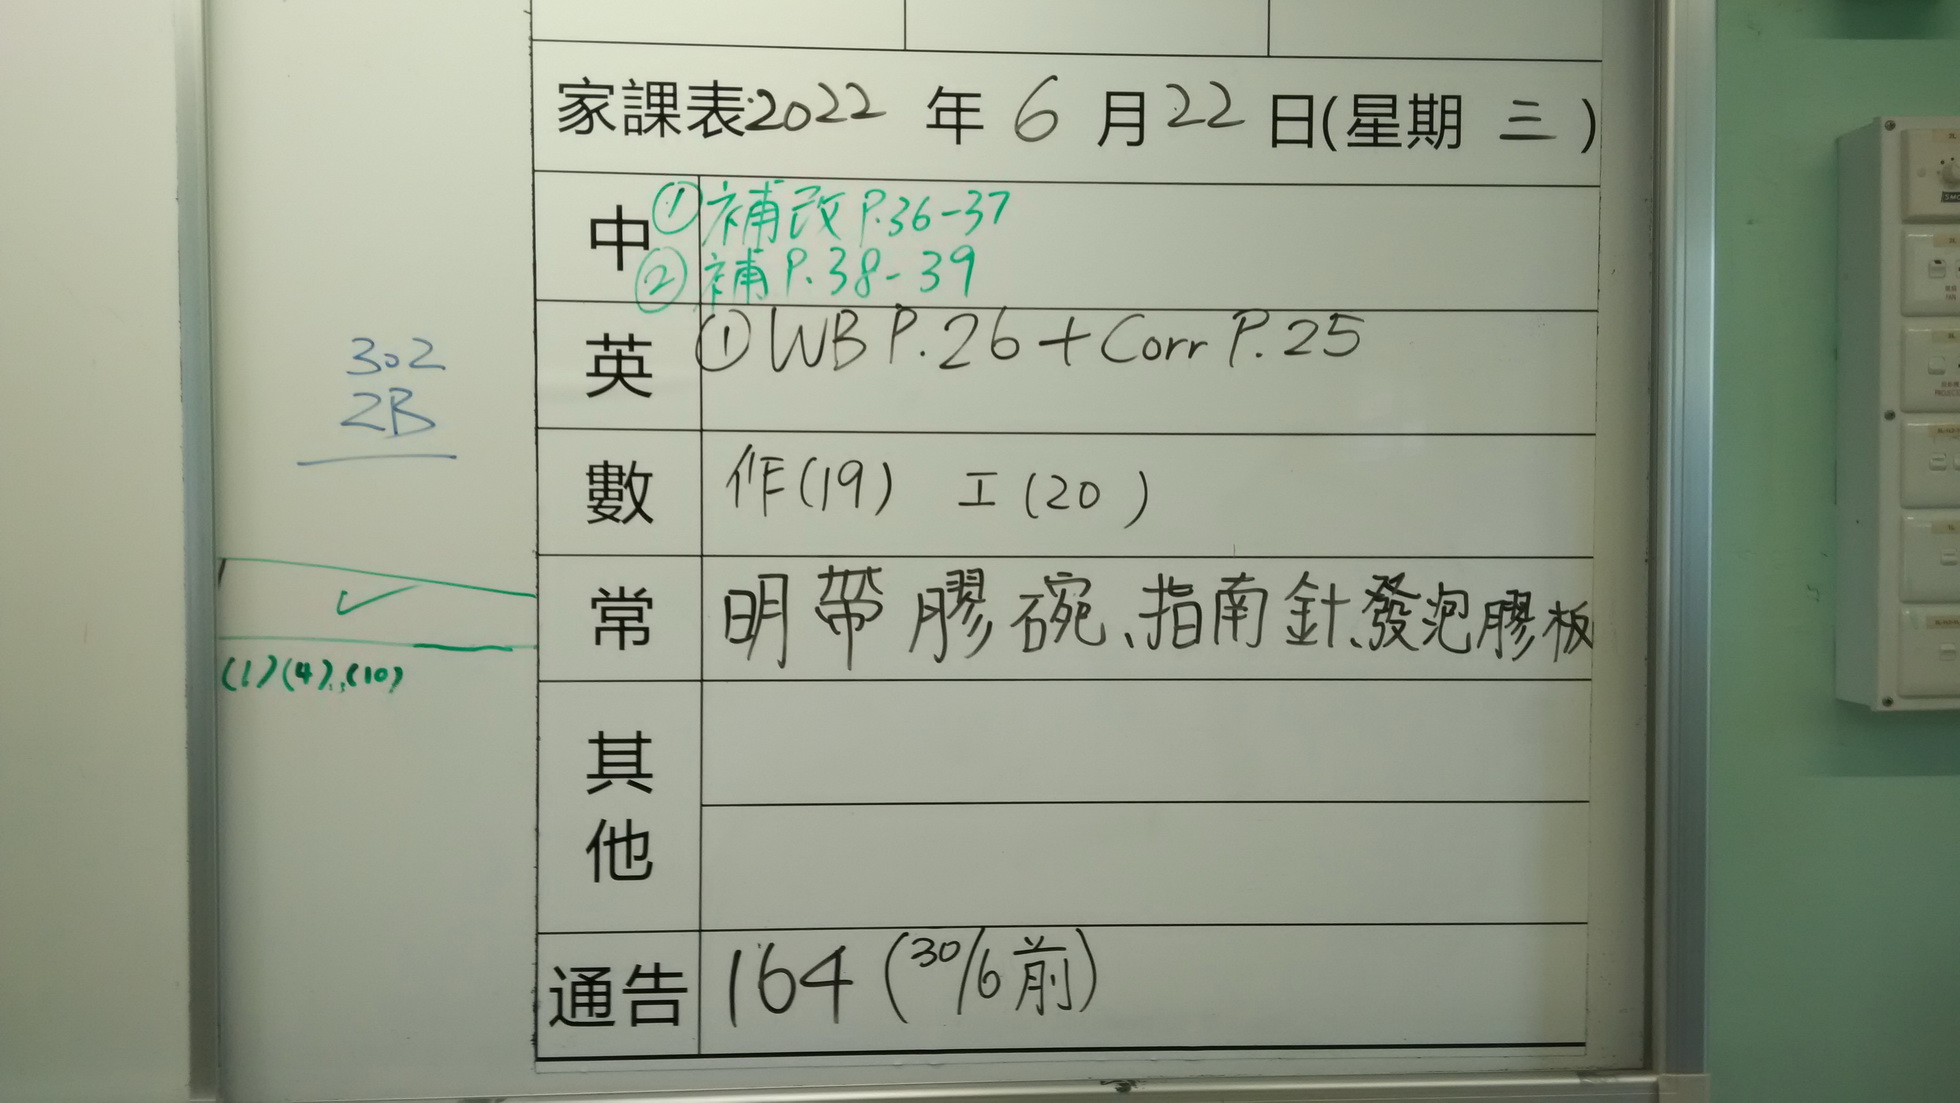 家課表2022 年 6 月 22 日(星期 三 )
中 ①補改 P.36-37
②補 P.38-39
英 ①WB P.26 + Corr P.25
數 作(19) 工(20 )
常 明帶膠碗、指南針、發泡膠板
其他
通告 164 (30/6前)
302
2B
✓
(1)(4),(10)